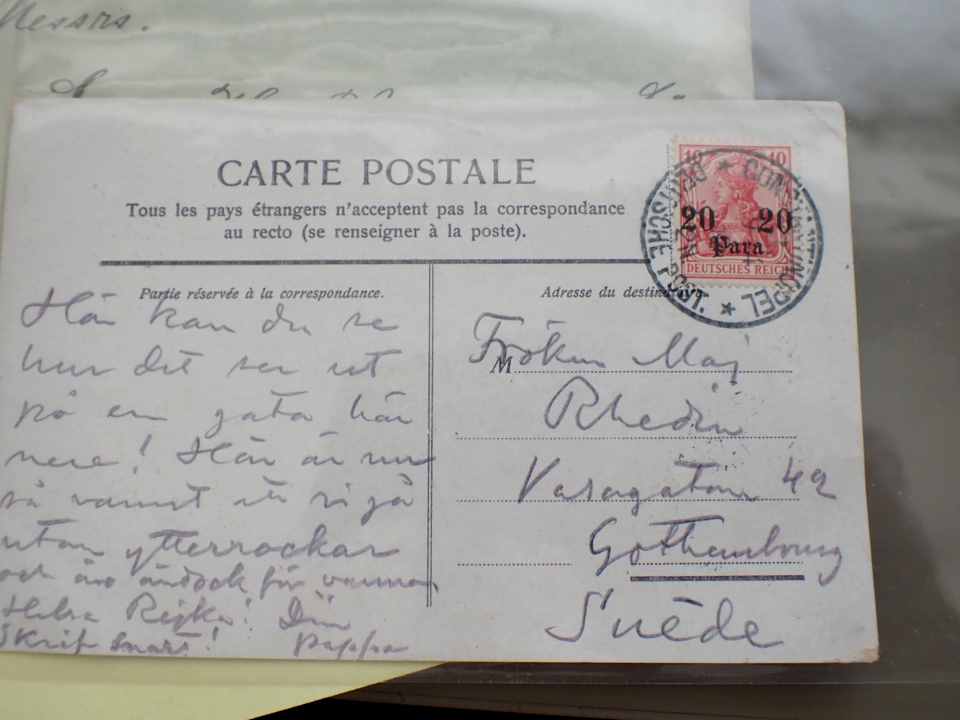 Messrs.
CARTE POSTALE
Tous les pays étrangers n'acceptent pas la correspondance
au recto (se renseigner à la poste).
10 10
20 20
Para
DEUTSCHES REICH
CONSTANTINOPEL
DEUTSCHE POST
Partie réservée à la correspondance.
Här kan du se
hur det ser ut
på en gata här
nere! Här är nu
så varmt att vi gå
utan ytterrockar
och äro ändock för varma.
Helsa Rejka! Din
Skrif snart! Pappa
Adresse du destinataire.
M
Fröken Maj
Rhedin
Vasagatan 42
Gothembourg
Suède